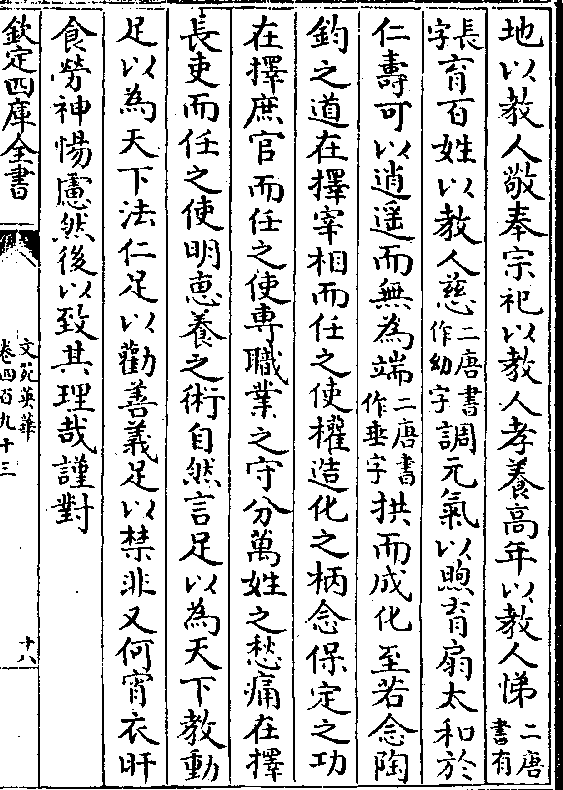 地以教人敬奉宗祀以教人孝養高年以教人悌二唐書有
長字育百姓以教人慈二唐書作幼字調元氣以煦育扇太和於
仁壽可以逍遥而無為端二唐書作垂字拱而成化至若念陶
鈞之道在擇宰相而任之使權造化之柄念保定之功
在擇庶官而任之使專職業之守分萬姓之愁痛在擇
長吏而任之使明惠養之術自然言足以為天下教動
足以為天下法仁足以勸善義足以禁非又何宵衣旰
食勞神惕慮然後以致其理哉謹對
欽定四庫全書
文苑英華
卷四百九十三
十八